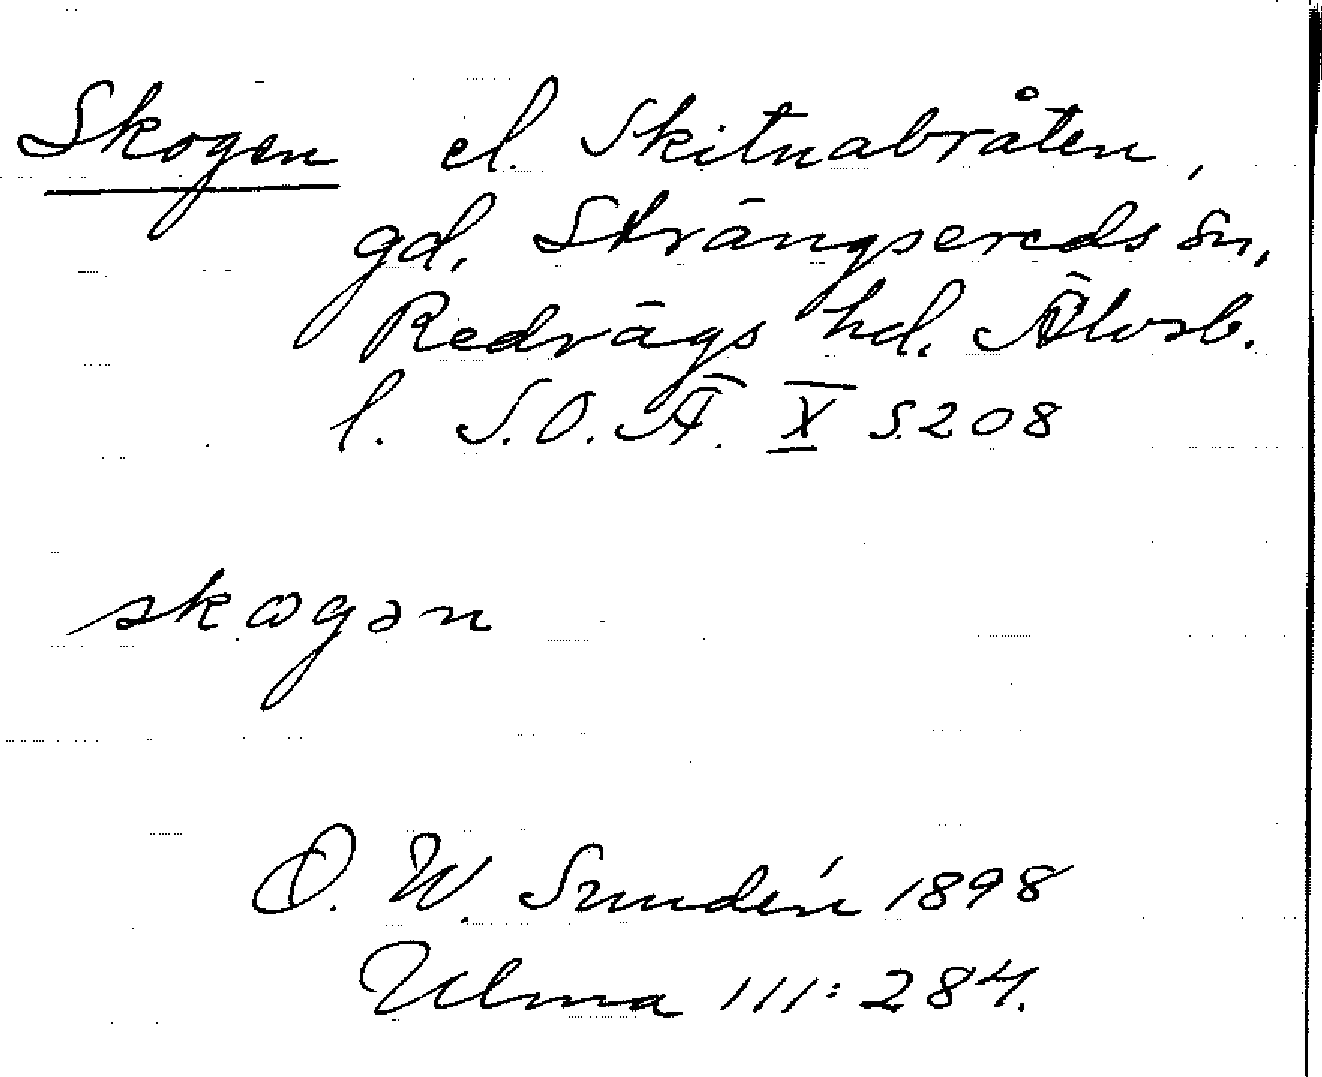 Skogen el. Skitnabråten,
gd, Strängsereds sn,
Redvägs hd. Älvsb.
l. S.O.Ä. X s. 208
skogən
O. W. Sundén 1898
Ulma 111:284.